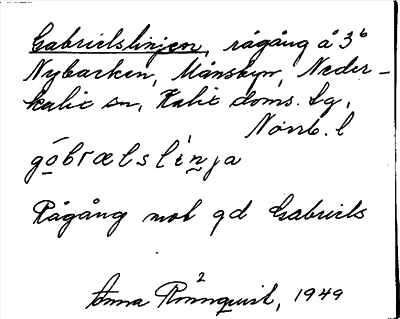 Gabrielslinjen, rågång å 3⁶
Nybacken, Månsbyn, Neder-
kalix sn, Kalix doms. lg,
Norrb. l
gòbrælslìnja
Rågång mot gd Gabriels
2
Anna Rönnquist, 1949